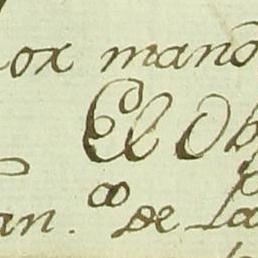 ox mano
El Ob
an.co de La